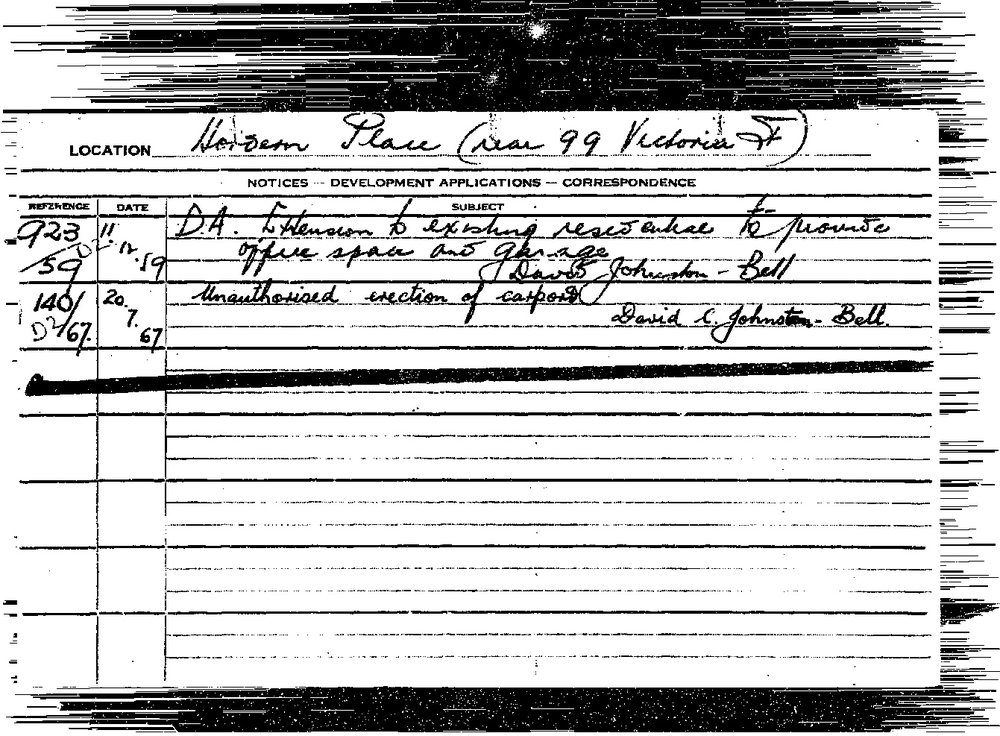 LOCATION Hordern Place (near 99 Victoria St)
NOTICES — DEVELOPMENT APPLICATIONS — CORRESPONDENCE
REFERENCE DATE SUBJECT
923 D2/59 11.12.59 D.A. Extension to existing residence to provide
office space and garage
David Johnston-Bell
140/D2/67. 20.7.67 Unauthorised erection of carport
David C. Johnston-Bell.